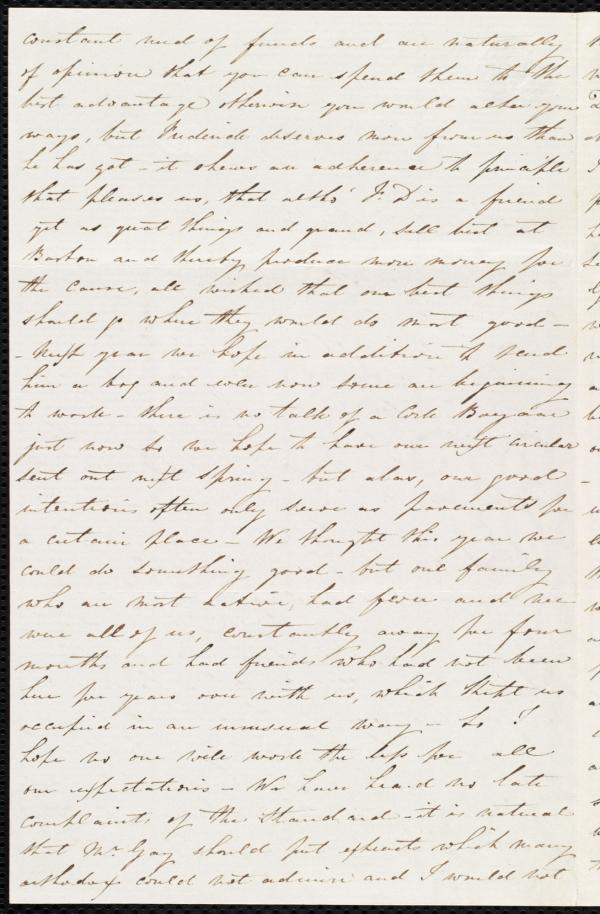 constant need of funds and are naturally
of opinion that you can spend them to the
best advantage otherwise you would alter your
ways, but Frederick deserves more from us than
he has got - it shews an adherence to principle
that pleases us, that altho' F. D is a friend
yet as great things and grand, sell best at
Boston and thereby produce more money for
the cause, all wished that our best things
should go where they would do most good -
- Next year we hope in addition to send
him a box and even now some are beginning
to work - there is no talk of a Cork Bazaar
just now so we hope to have our next circular
sent out next spring - but alas, our good
intentions often only serve as pavements for
a certain place - We thought this year we
could do something good - but one family
who are most active, had fever and we
were all of us, constantly away for four
months and had friends who had not been
here for years over with us, which kept us
occupied in an unusual way - so I
hope no one will work the less for all
our expectations - We have heard no late
complaints of the Standard - it is natural
that Mr. Gay should put extracts which many
orthodox could not admire and I would not